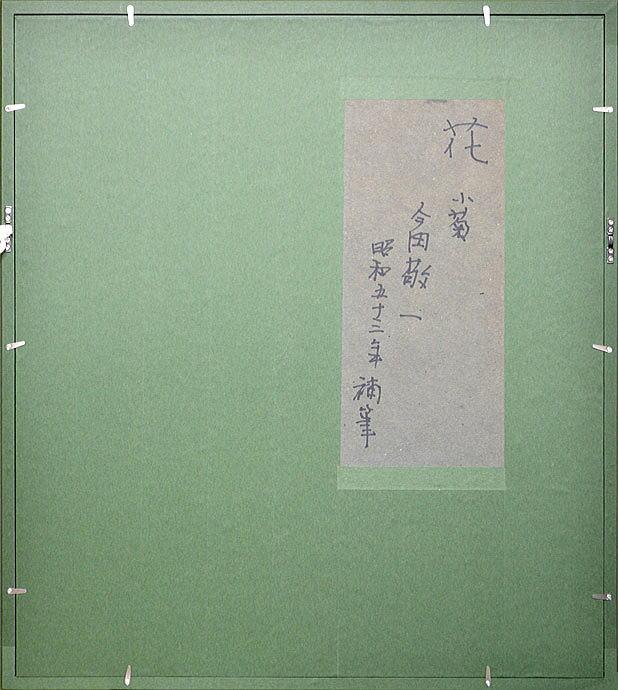 花
小菊
今田敬一
昭和五十二年 補筆